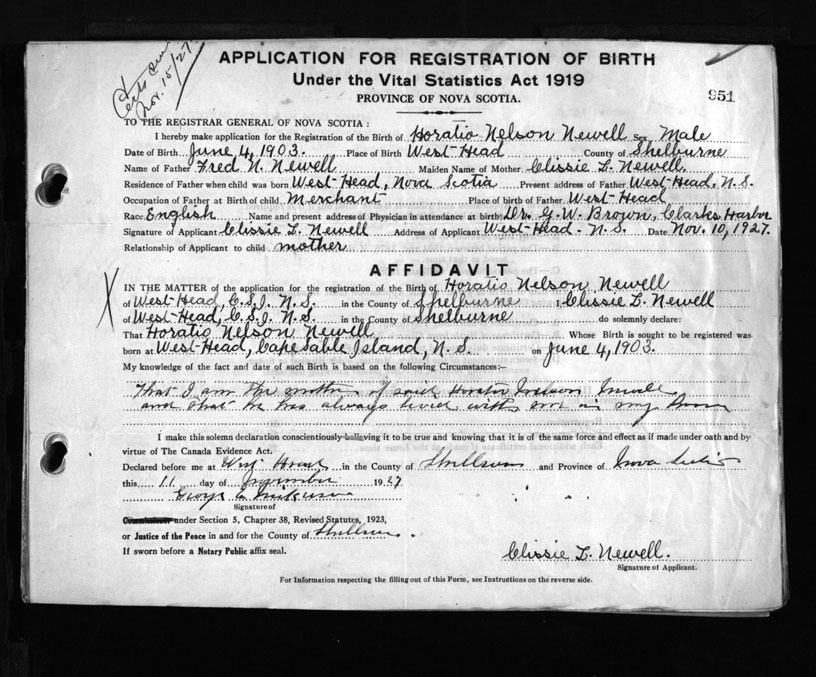 Certs sent
Nov. 15/27.
APPLICATION FOR REGISTRATION OF BIRTH
Under the Vital Statistics Act 1919
951
PROVINCE OF NOVA SCOTIA.
TO THE REGISTRAR GENERAL OF NOVA SCOTIA:
I hereby make application for the Registration of the Birth of Horatio Nelson Newell Sex Male
Date of Birth June 4, 1903. Place of Birth West-Head County of Shelburne
Name of Father Fred N. Newell Maiden Name of Mother Clissie L. Newell
Residence of Father when child was born West-Head, Nova Scotia Present address of Father West-Head, N.S.
Occupation of Father at Birth of child Merchant Place of birth of Father West-Head
Race English Name and present address of Physician in attendance at birth: Dr. G.W. Brown, Clarks Harbor
Signature of Applicant Clissie L. Newell Address of Applicant West-Head-N.S. Date Nov. 10, 1927.
Relationship of Applicant to child mother
AFFIDAVIT
X
IN THE MATTER of the application for the registration of the Birth of Horatio Nelson Newell
of West-Head, C.S.I. N.S. in the County of Shelburne I, Clissie L. Newell
of West-Head, C.S.I. N.S. in the County of Shelburne do solemnly declare:
That Horatio Nelson Newell Whose Birth is sought to be registered was
born at West-Head, Cape Sable Island, N.S. on June 4, 1903.
My knowledge of the fact and date of such Birth is based on the following Circumstances:—
That I am the mother of said Horatio Nelson Newell
and that he has always lived with me in my home
I make this solemn declaration conscientiously believing it to be true and knowing that it is of the same force and effect as if made under oath and by
virtue of The Canada Evidence Act.
Declared before me at West Head in the County of Shelburne and Province of Nova Scotia
this 11 day of November 1927
George
Signature of
Commissioner under Section 5, Chapter 38, Revised Statutes, 1923,
or Justice of the Peace in and for the County of Shelburne.
If sworn before a Notary Public affix seal.
Clissie L. Newell.
Signature of Applicant.
For Information respecting the filling out of this Form, see Instructions on the reverse side.